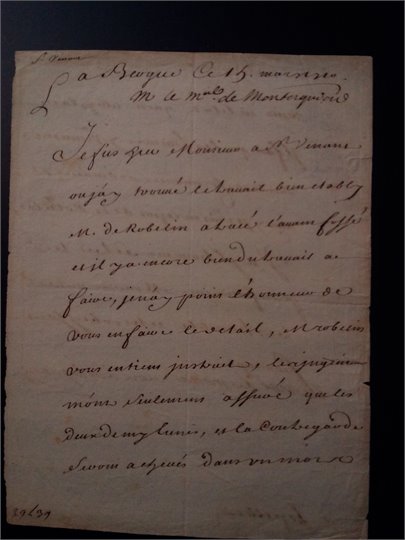 St Venant
La Beoque Ce 15. mars 1710.
M le mal de Montesquiou
Je fus hier Monsieur a St Venant
ou jay trouvé le travail bien etably
M. de Robelin a tracé l'avant fossé
et il y a encore bien du travail a
faire, je nay point l'honneur de
vous en faire le detail, M robelin
vous en tient instruit, les ingen
m'ont seulement assuré que les
deux demy lunes, et la Contregarde
seront achevés dans un mois